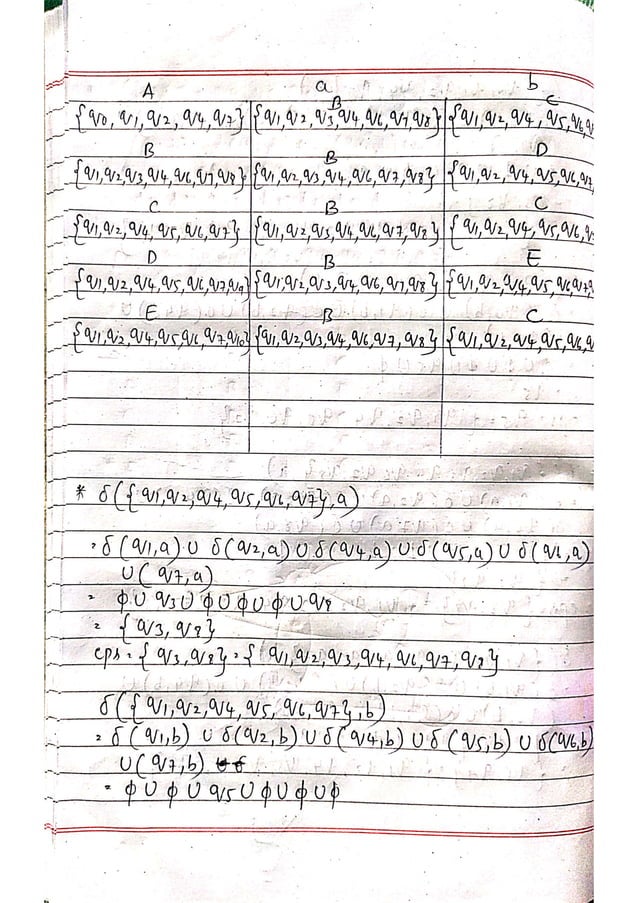 A a b
{q0, q1, q2, q4, q7} {q1,q2,q3,q4,q6,q7,q8} B {q1,q2,q4,q5,q6, C
B B D
{q1,q2,q3,q4,q6,q7,q8} {q1,q2,q3,q4,q6,q7,q8} {q1,q2,q4,q5,q6,q7,
C B C
{q1,q2,q4,q5,q6,q7} {q1,q2,q3,q4,q6,q7,q8} {q1,q2,q4,q5,q6,
D B E
{q1,q2,q4,q5,q6,q7,q9} {q1,q2,q3,q4,q6,q7,q8} {q1,q2,q4,q5,q6,q7,
E B C
{q1,q2,q4,q5,q6,q7,q10} {q1,q2,q3,q4,q6,q7,q8} {q1,q2,q4,q5,q6,
* δ({q1,q2,q4,q5,q6,q7},a)
= δ(q1,a) ∪ δ(q2,a) ∪ δ(q4,a) ∪ δ(q5,a) ∪ δ(q6,a)
∪(q7,a)
= φ ∪ q3 ∪ φ ∪ φ ∪ φ ∪ q8
= {q3,q8}
eps = {q3,q8} = {q1,q2,q3,q4,q6,q7,q8}
δ({q1,q2,q4,q5,q6,q7},b)
= δ(q1,b) ∪ δ(q2,b) ∪ δ(q4,b) ∪ δ(q5,b) ∪ δ(q6,b)
∪(q7,b)
= φ ∪ φ ∪ q5 ∪ φ ∪ φ ∪ φ